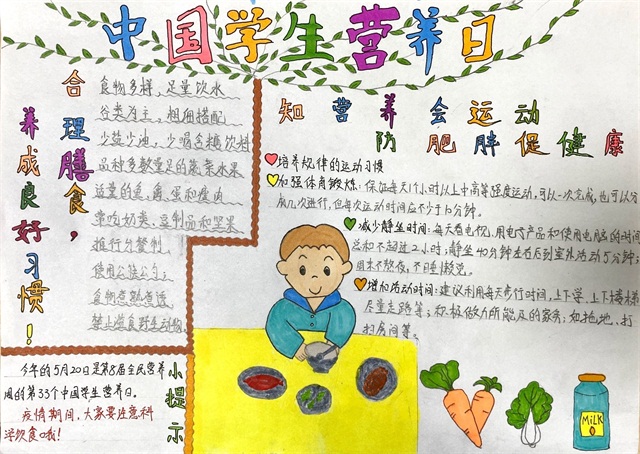 中国学生营养日
合理膳食，
养成良好习惯！
食物多样，足量饮水
谷类为主，粗细搭配
少盐少油，少喝含糖饮料
品种多数量足的蔬菜水果
适量的鱼、禽、蛋和瘦肉
常吃奶类、豆制品和坚果
推行分餐制，
使用公筷公勺；
食物煮熟煮透
禁止滥食野生动物
知营养 会运动
防肥胖 促健康
培养规律的运动习惯
加强体育锻炼：保证每天1个小时以上中高等强度运动，可以一次完成，也可以分
成几次进行，但每次运动时间应不少于10分钟。
减少静坐时间：每天看电视、用电子产品和使用电脑的时间
总和不超过2小时；静坐40分钟左右应到室外活动5分钟；
周末不熬夜，不睡懒觉。
增加活动时间：建议利用每天步行时间，上下学、上下楼梯
尽量走路等；积极做力所能及的家务；如拖地、打
扫房间等。
今年的5月20日是第8届全民营养
周的第33个中国学生营养日。
疫情期间，大家要注意科
学饮食哦！
小提示
MiLK